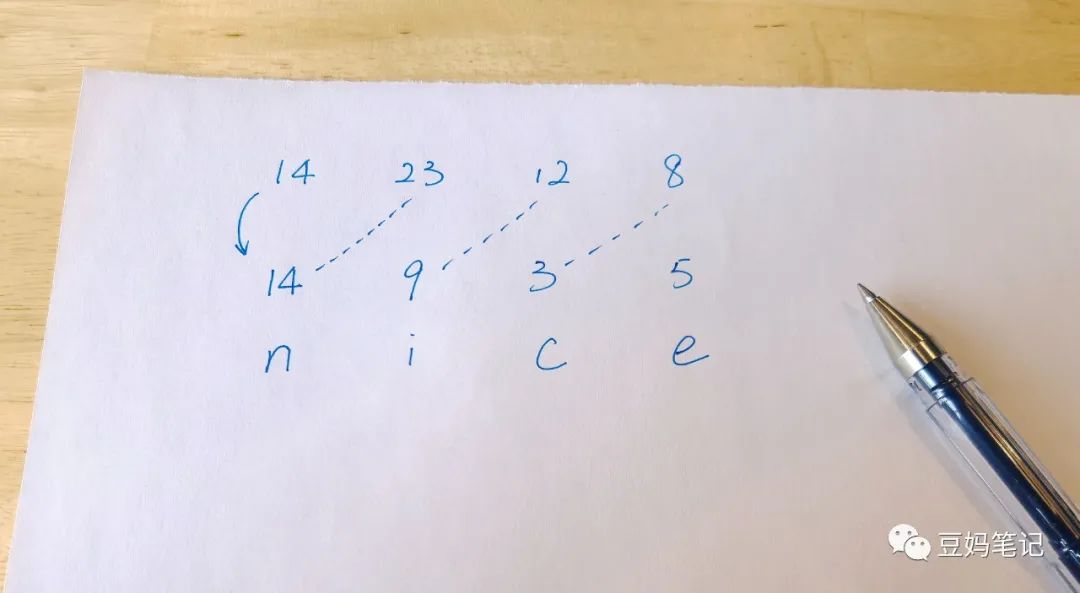 14 23 12 8
14 9 3 5
n i c e
豆妈笔记